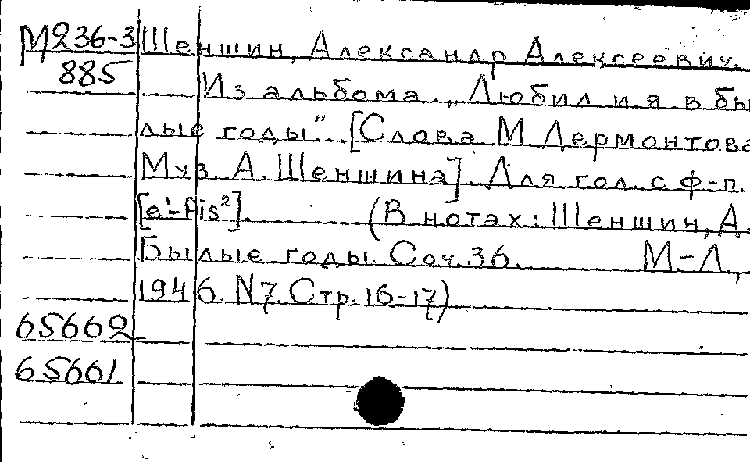 М236-3 Шеншин, Александр Алексеевич.
885 Из альбома. „Любил и я в бы
лые годы". [Слова М Лермонтова
Муз. А. Шеншина]. Для гол. с ф-п.
[e¹-fis²]. (В нотах: Шеншин, А.
Былые годы. Соч. 36. М-Л.,
1946. N7. Стр. 16-17)
65662
65661